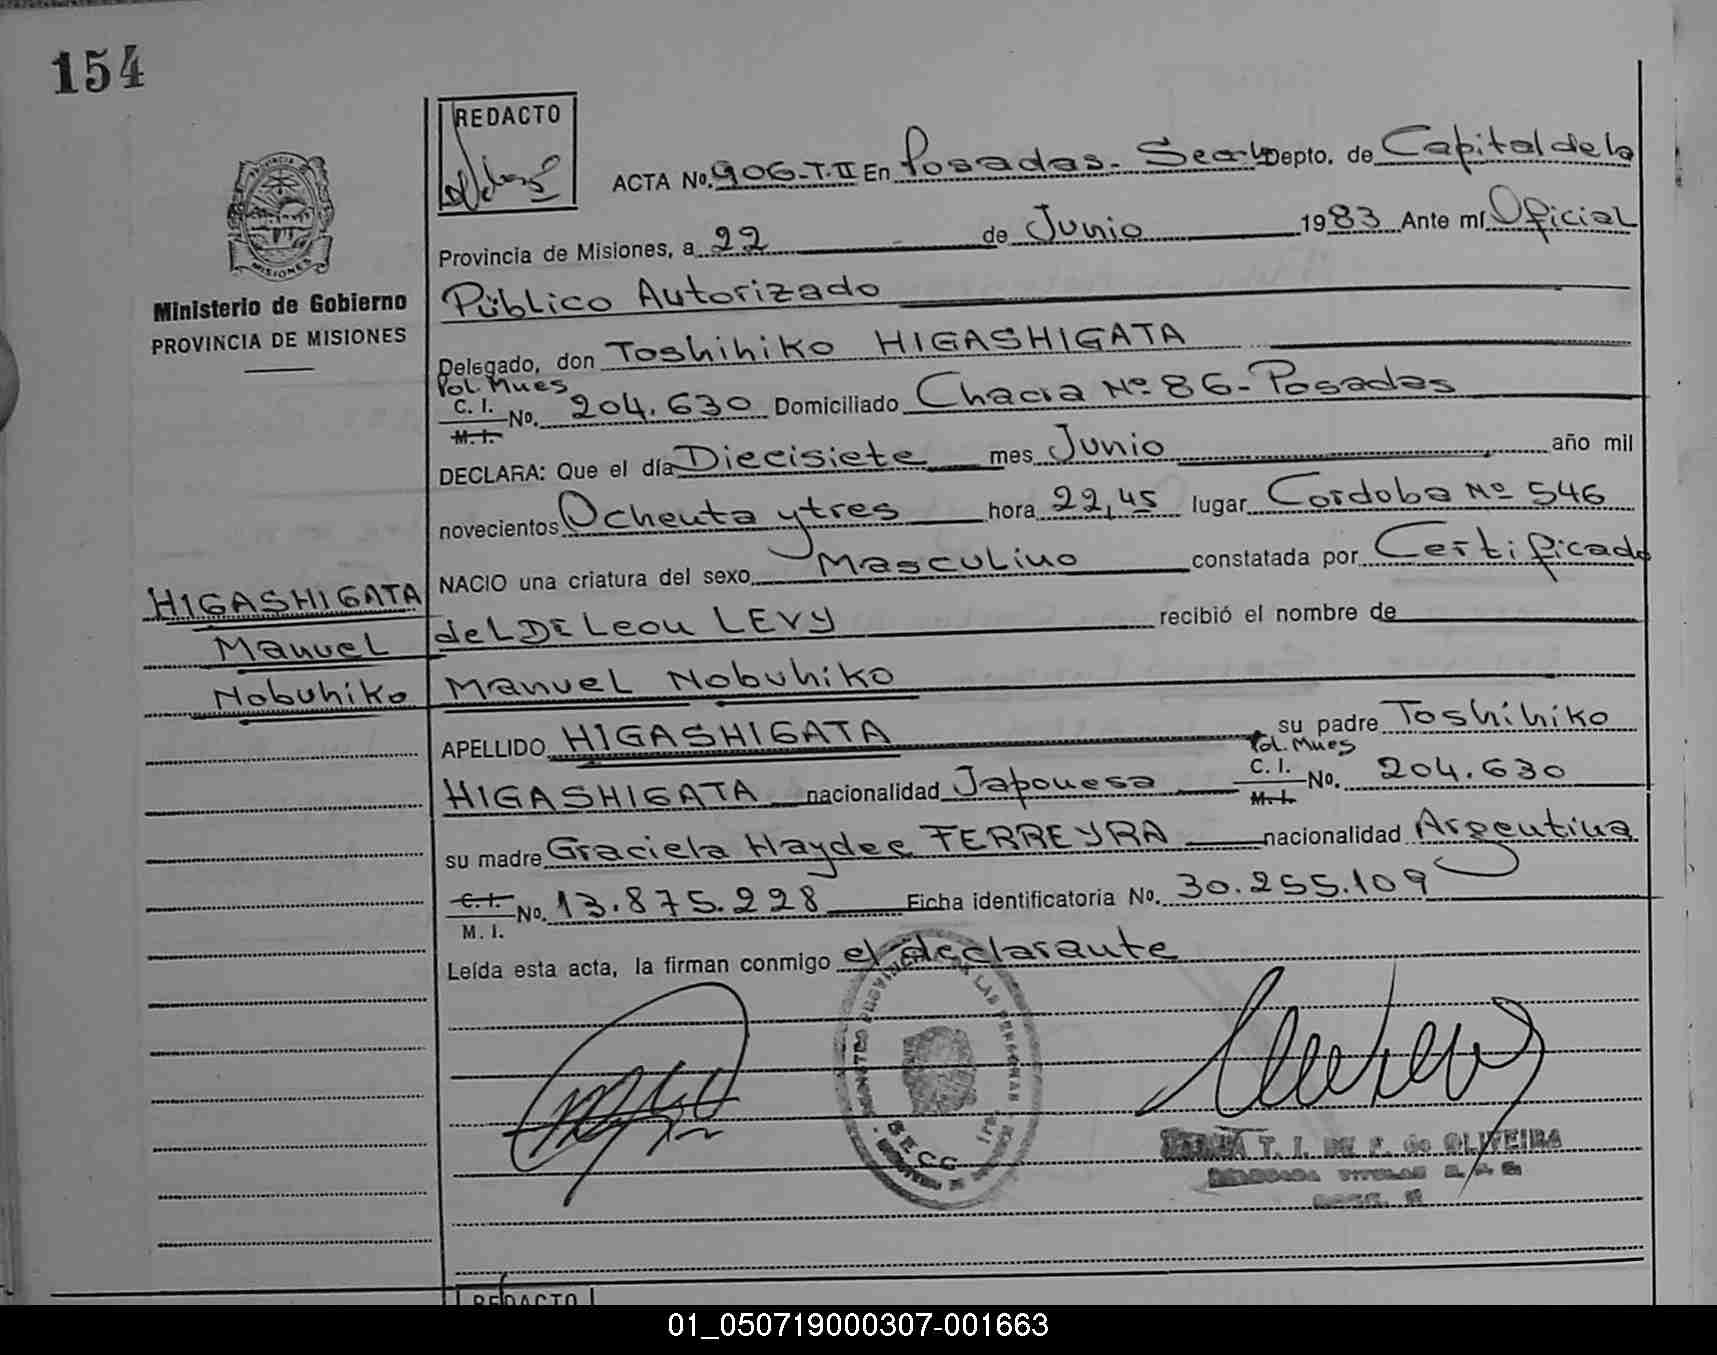 154
REDACTO
ACTA No. 906-T.II En Posadas- Depto. de Capital de la
Provincia de Misiones, a 22 de Junio 1983 Ante mí Oficial
Público Autorizado
Delegado, don Toshihiko HIGASHIGATA
Pol. Mnes
C. I. No. 204.630 Domiciliado Chacra Nº 86- Posadas
M. I.
DECLARA: Que el día Diecisiete mes Junio año mil
novecientos Ochenta y tres hora 22,45 lugar Cordoba Nº 546
NACIO una criatura del sexo Masculino constatada por Certificado
del Dr Leon LEVY recibió el nombre de
Manuel Nobuhiko
APELLIDO HIGASHIGATA su padre Toshihiko
Pol. Mnes
HIGASHIGATA nacionalidad Japonesa C. I. No. 204.630
M. I.
su madre Graciela Haydee FERREYRA nacionalidad Argentina
C. I. No. 13.875.228 Ficha identificatoria No. 30.255.109
M. I.
Leída esta acta, la firman conmigo el declarante
MISIONES
Ministerio de Gobierno
PROVINCIA DE MISIONES
HIGASHIGATA
Manuel
Nobuhiko
T. I. DE F. de OLIVEIRA
TITULAR
REDACTO
01_050719000307-001663